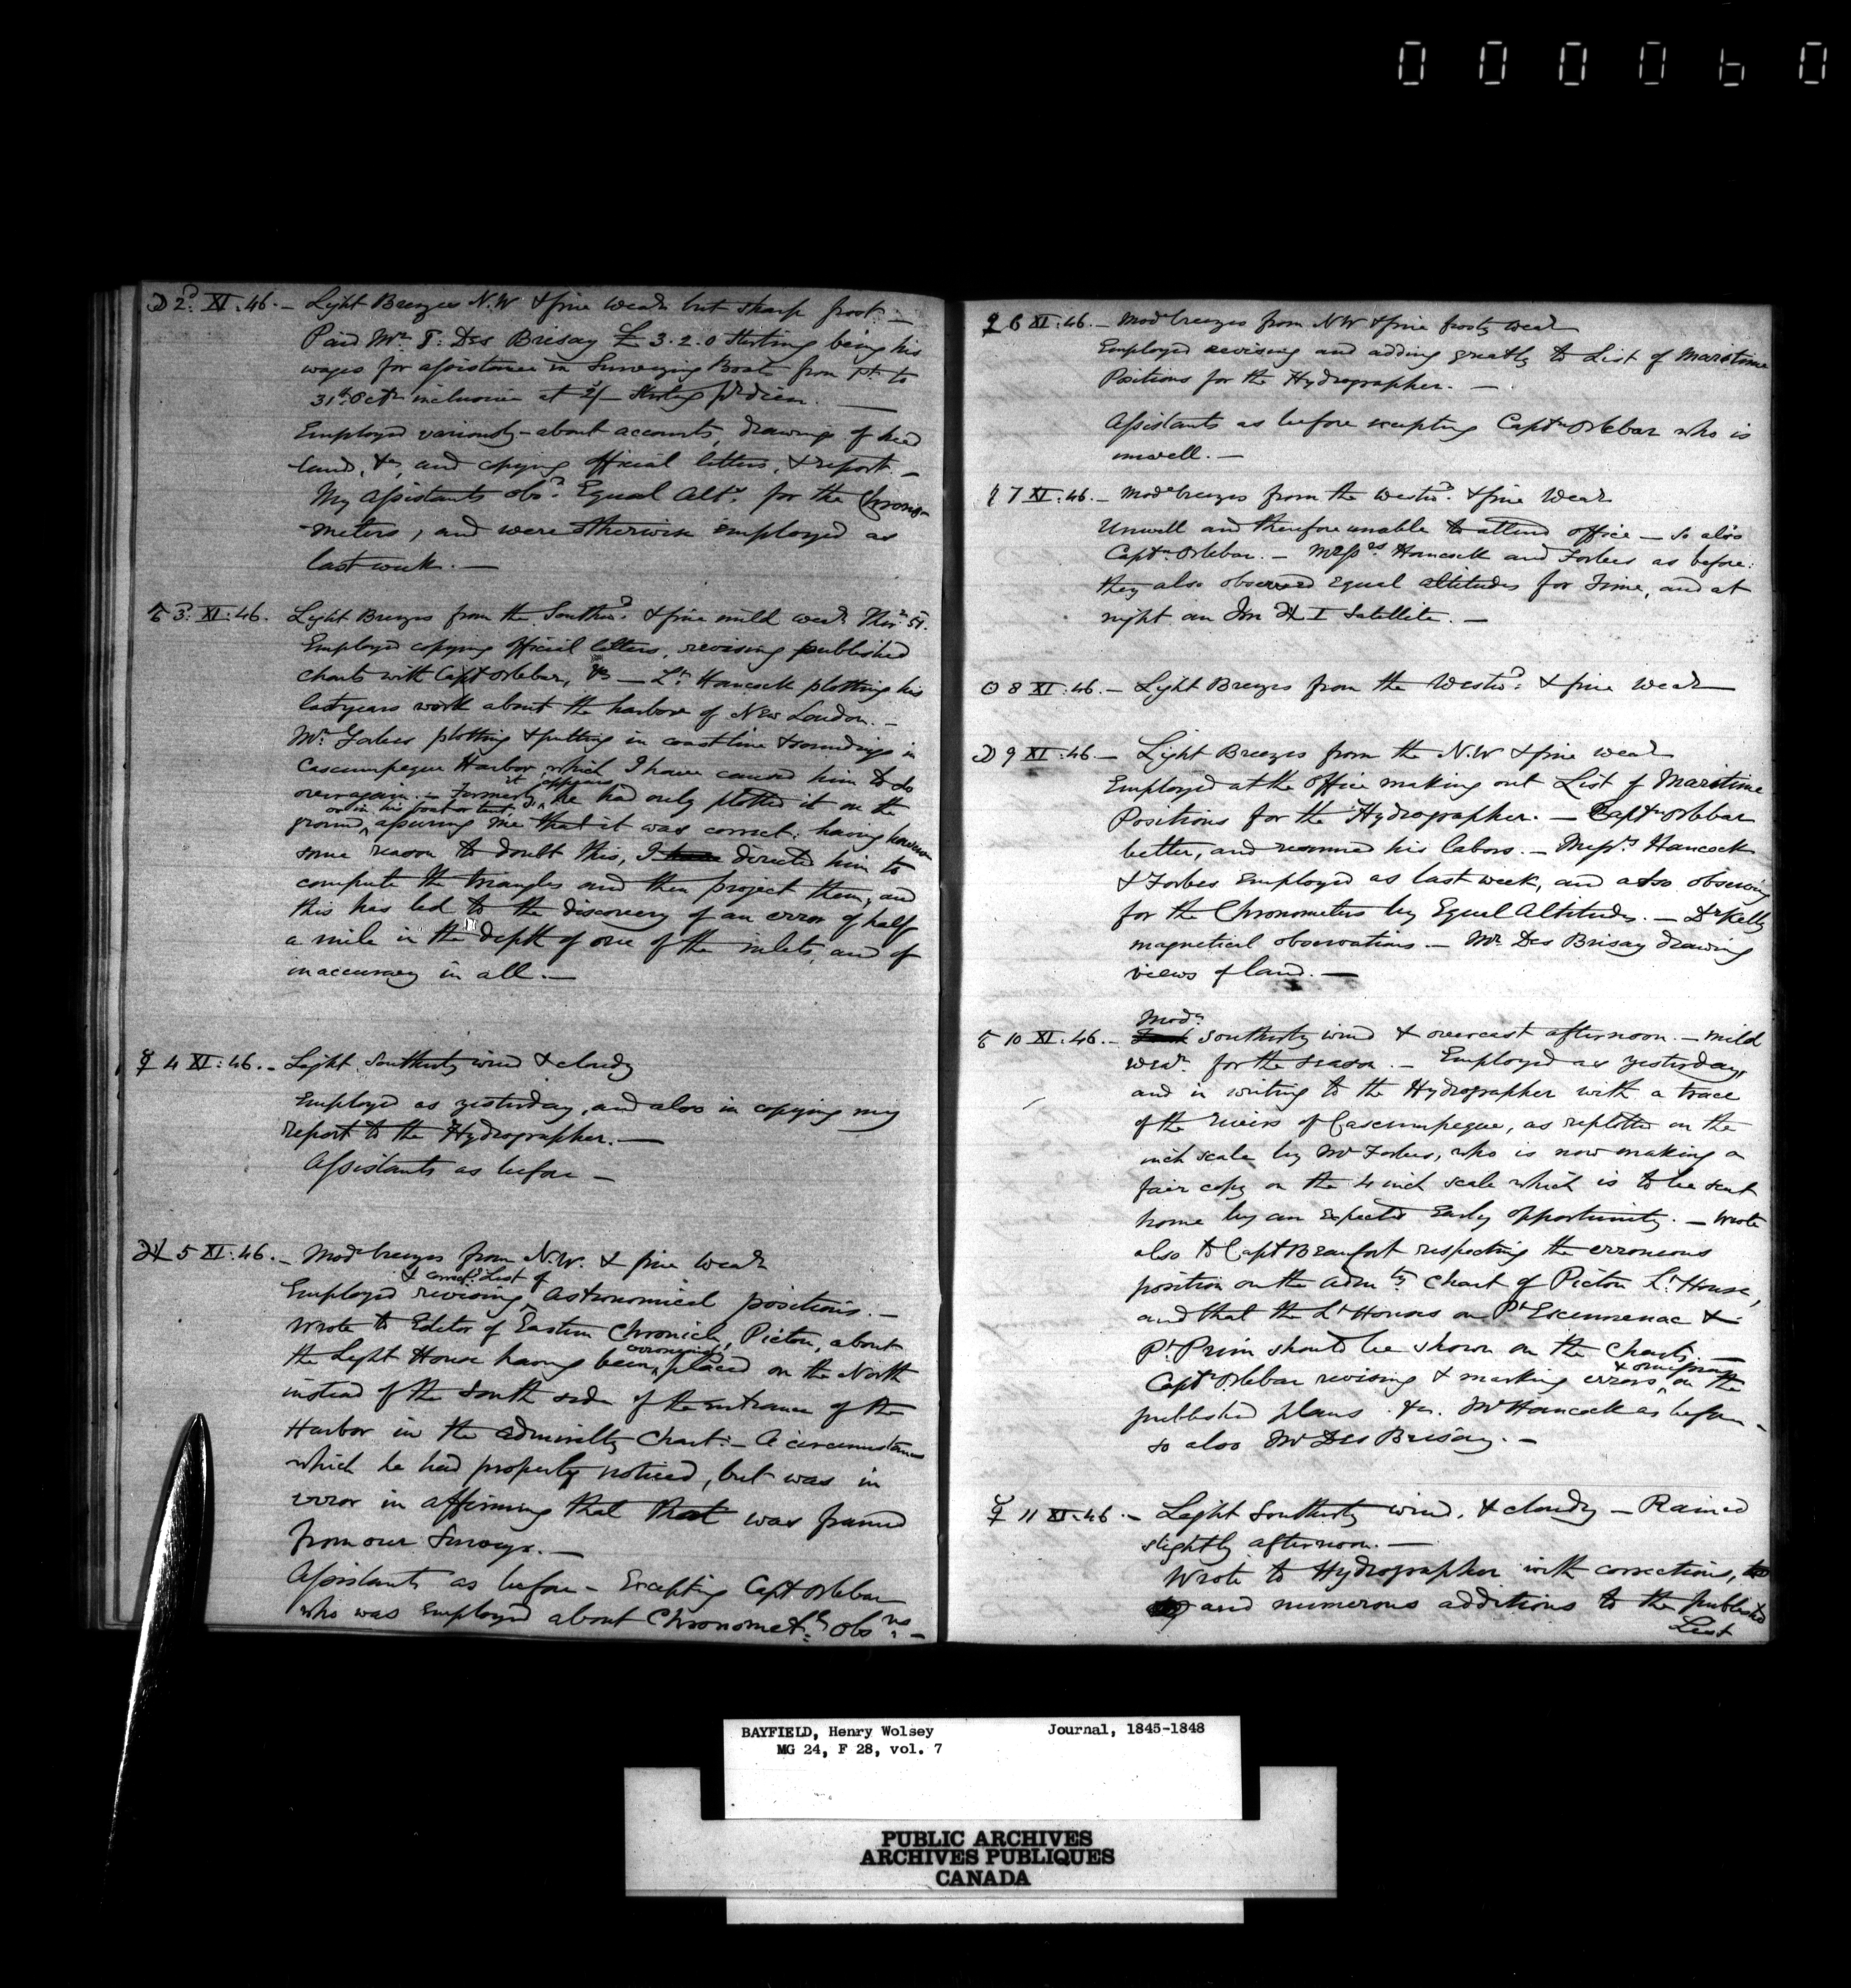 000060
☽ 2d XI. 46. – Light Breezes N.W & fine wear but sharp frost –
Paid Mr T. Des Brisay £ 3.2.0 Sterling being his
wages for assistance in Surveying Boats from 1st to
31st Octr inclusive at 2/– Sterlg pr diem. —
Employed variously – about accounts, drawings of head
land, &c, and copying official letters, & report. –
My Assistants obsd Equal Alts for the Chrono-
meters, and were otherwise employed as
last week. —
♂ 3d XI. 46. Light Breezes from the Southwd & fine mild wear Therr 51.
Employed copying official letters, revising published
charts with Capt Orlebar, &c — Lt Hancock plotting his
last years work about the harbor of New London. –
Mr Forbes plotting & putting in coastline & soundings in
Cascumpeque Harbor, which I have caused him to do
over again. – Formerly it appears he had only plotted it on the
ground, or in his boat or tent, assuring me that it was correct: having however
some reason to doubt this, I directed him to
compute the triangles and then project them, and
this has led to the discovery of an error of half
a mile in the depth of one of the inlets, and of
inaccuracy in all. —
☿ 4 XI. 46. – Light Southerly wind & cloudy
Employed as yesterday, and also in copying my
report to the Hydrographer. —
Assistants as before –
♃ 5 XI. 46. – Modr breezes from N.W. & fine wear
Employed revising & correctg List of Astronomical positions. –
Wrote to Editor of Eastern Chronicle, Pictou, about
the Light House having been erroneously placed on the North
instead of the South side of the entrance of the
Harbor in the Admiralty Chart: – A circumstance
which he had properly noticed, but was in
error in affirming that that was framed
from our Surveys. —
Assistants as before – Excepting Capt Orlebar
who was employed about Chronometl Obsns –
♀ 6 XI. 46. – Modr breezes from NW & fine frosty wear
Employed revising and adding greatly to List of Maritime
Positions for the Hydrographer. —
Assistants as before excepting Captn Orlebar who is
unwell. —
♄ 7 XI. 46. – Modr breezes from the Westwd & fine Wear
Unwell and therefore unable to attend office — so also
Captn Orlebar. – Messrs Hancock and Forbes as before:
they also observed Equal altitudes for Time, and at
night an Imn ♃ I Satellite. —
☉ 8 XI. 46. – Light Breezes from the Westwd & fine Wear
☽ 9 XI. 46 — Light Breezes from the N.W & fine wear
Employed at the Office making out List of Maritime
Positions for the Hydrographer. — Captn Orlebar
better, and resumed his labors. – Messrs Hancock
& Forbes Employed as last week, and also observing
for the Chronometers by Equal Altitudes. – Dr Kelly
magnetical observations — Mr Des Brisay drawing
views of land. —
♂ 10 XI. 46. – Modr Southerly wind & overcast afternoon. – mild
wear for the season. – Employed as yesterday,
and in writing to the Hydrographer with a trace
of the rivers of Cascumpeque, as replotted on the
inch scale by Mr Forbes, who is now making a
fair copy on the 4 inch scale which is to be sent
home by an expected Early opportunity. – Wrote
also to Capt Beaufort respecting the erroneous
position on the Admty Chart of Pictou Lt House,
and that the Lt Houses on Pt Escuminac &
Pt Prim should be shown on the Charts. —
Captn Orlebar revising & marking errors & omissions on the
published plans &c. Mr Hancock as before –
so also Mr Des Brisay. –
☿ 11 XI. 46. – Light Southerly wind, & cloudy — Rained
slightly afternoon. —
Wrote to Hydrographer with corrections,
and numerous additions to the published
List
BAYFIELD, Henry Wolsey Journal, 1845-1848
MG 24, F 28, vol. 7
PUBLIC ARCHIVES
ARCHIVES PUBLIQUES
CANADA